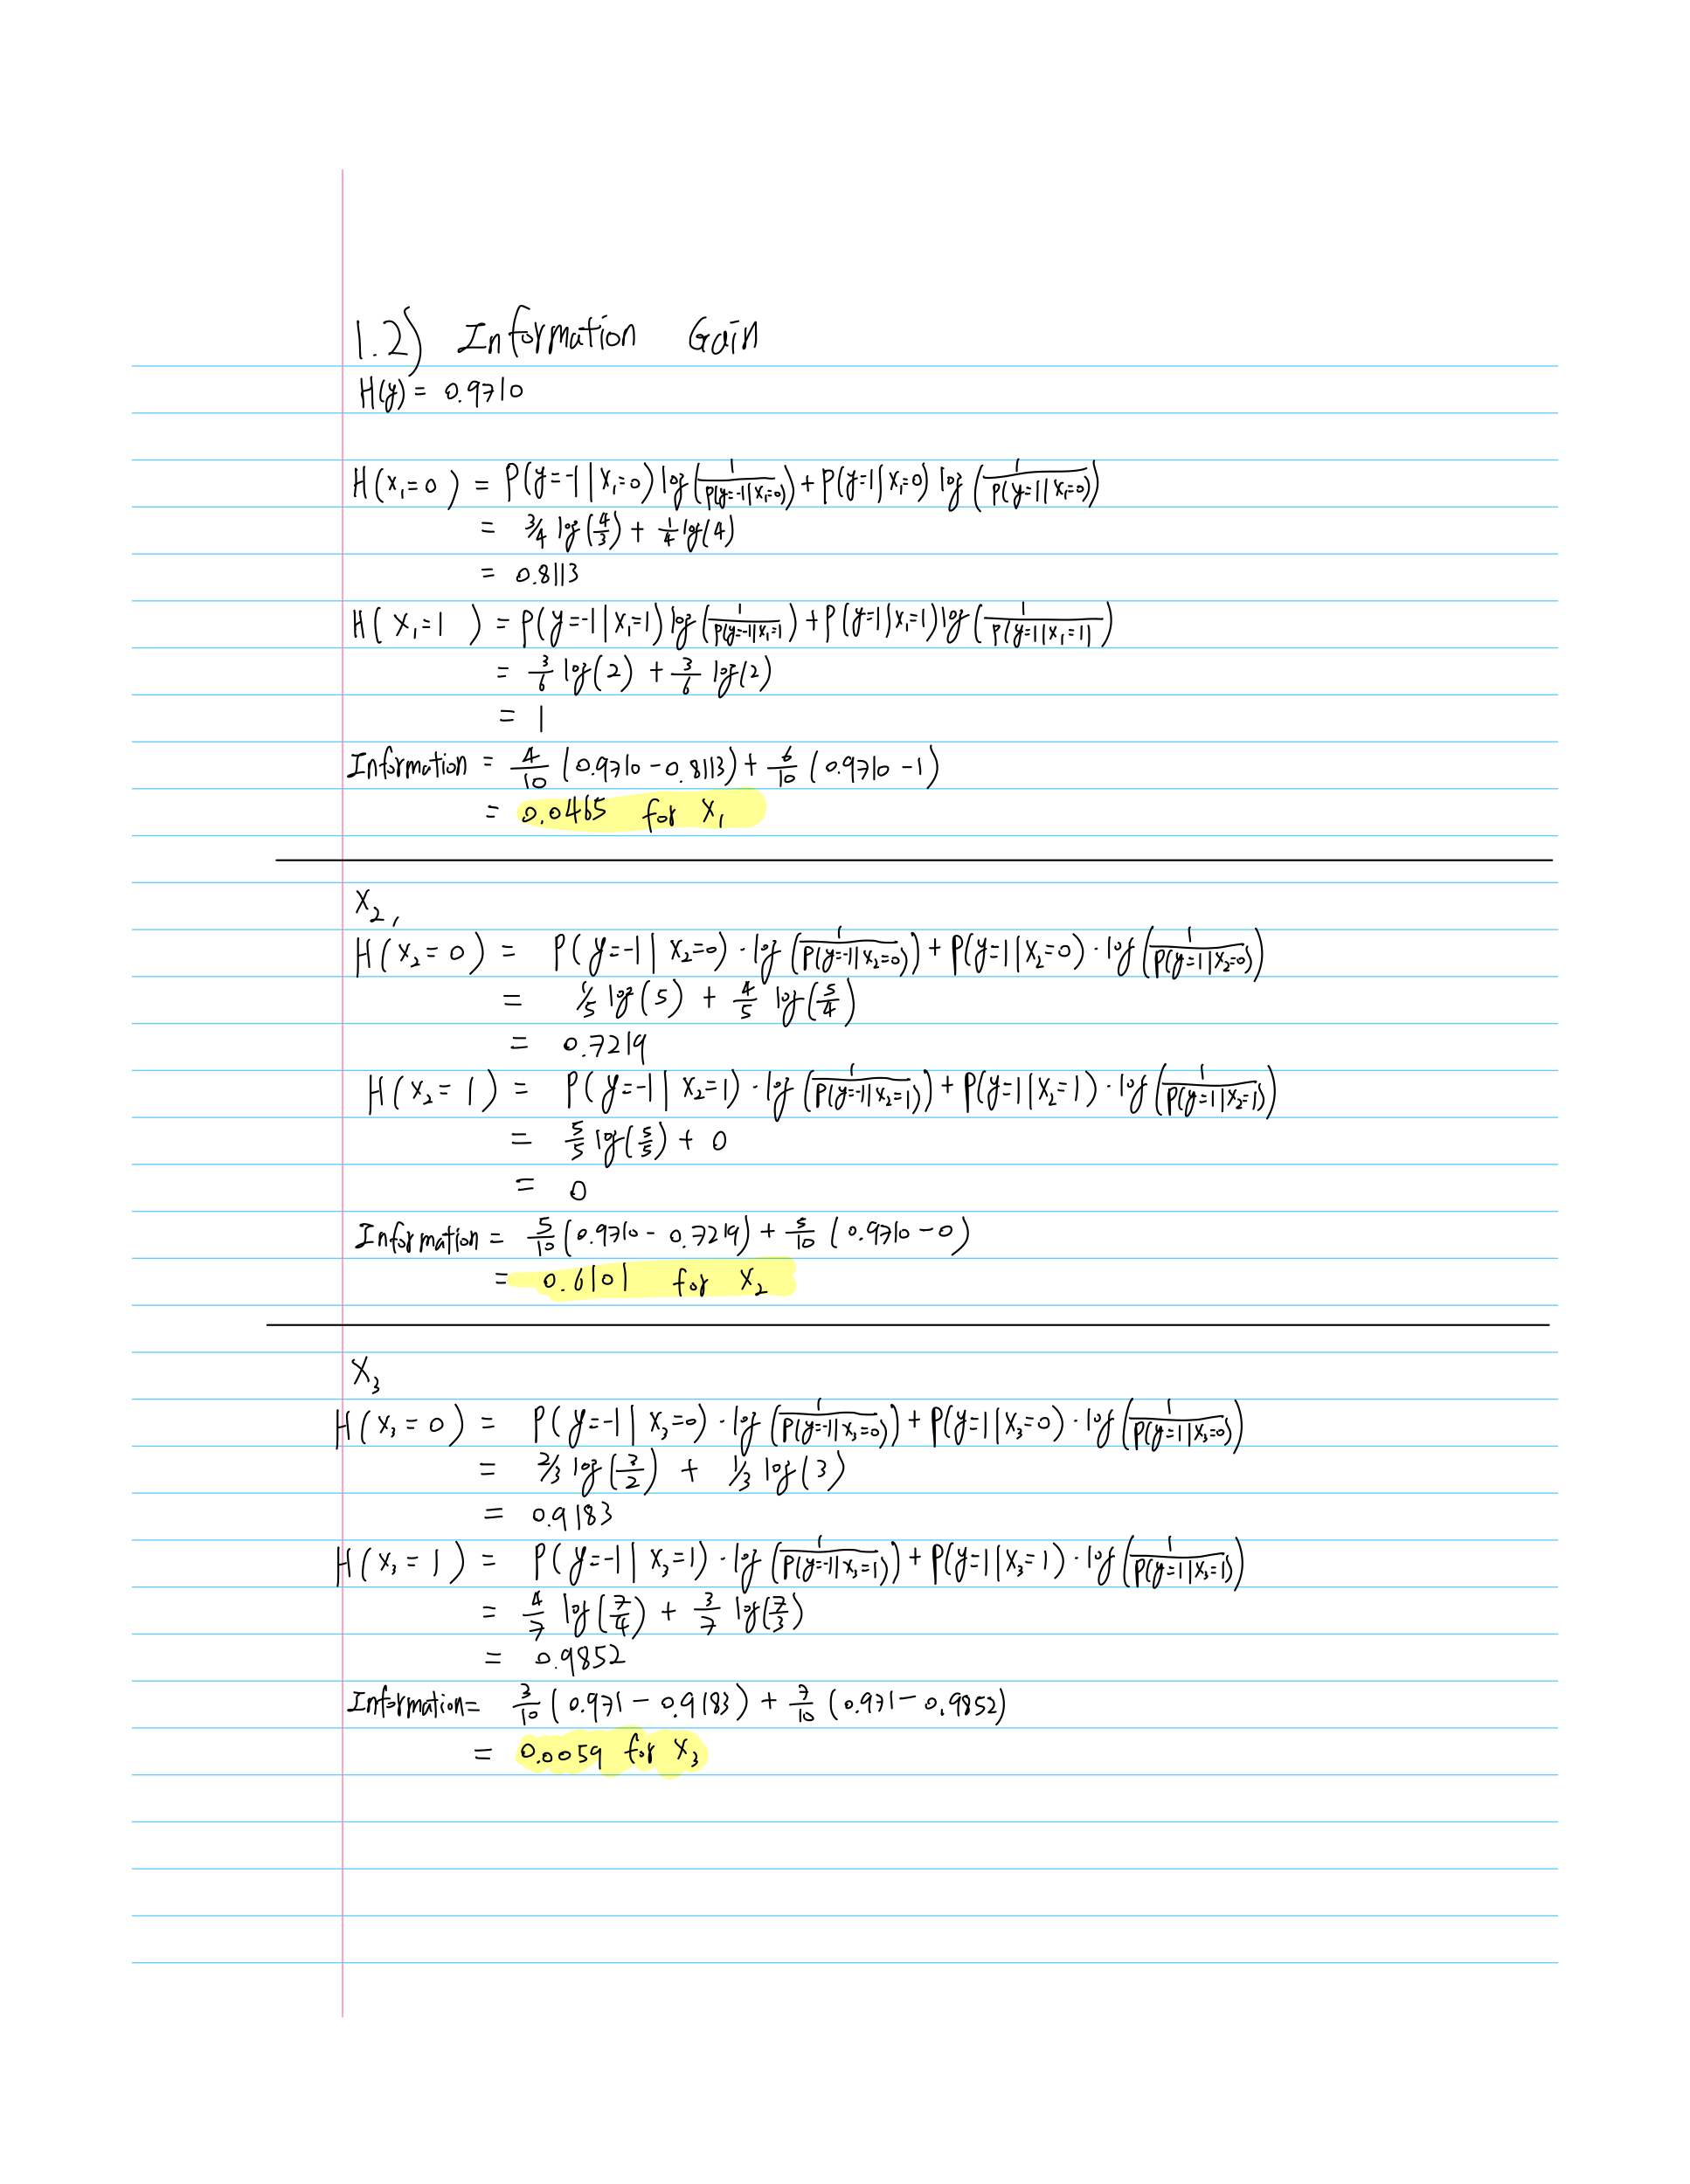 1.2) Information Gain
H(y) = 0.9710
H(x₁=0) = P(y=-1|x₁=0) log(1/P(y=-1|x₁=0)) + P(y=1|x₁=0) log(1/P(y=1|x₁=0))
= 3/4 log(4/3) + 1/4 log(4)
= 0.8113
H(x₁=1) = P(y=-1|x₁=1) log(1/P(y=-1|x₁=1) + P(y=1|x₁=1) log(1/P(y=1|x₁=1))
= 3/6 log(2) + 3/6 log(2)
= 1
Information = 4/10 (0.9710-0.8113) + 6/10 (0.9710-1)
= 0.0465 for x₁
x₂,
H(x₂=0) = P(y=-1|x₂=0) · log(1/P(y=-1|x₂=0)) + P(y=1|x₂=0) · log(1/P(y=1|x₂=0))
= 1/5 log(5) + 4/5 log(5/4)
= 0.7219
H(x₂=1) = P(y=-1|x₂=1) · log(1/P(y=-1|x₂=1)) + P(y=1|x₂=1) · log(1/P(y=1|x₂=1))
= 5/5 log(5/5) + 0
= 0
Information = 5/10 (0.9710-0.7219) + 5/10 (0.9710-0)
= 0.6101 for x₂
x₃
H(x₃=0) = P(y=-1|x₃=0) · log(1/P(y=-1|x₃=0)) + P(y=1|x₃=0) · log(1/P(y=1|x₃=0))
= 2/3 log(3/2) + 1/3 log(3)
= 0.9183
H(x₃=1) = P(y=-1|x₃=1) · log(1/P(y=-1|x₃=1)) + P(y=1|x₃=1) · log(1/P(y=1|x₃=1))
= 4/7 log(7/4) + 3/7 log(7/3)
= 0.9852
Information = 3/10 (0.971-0.9183) + 7/10 (0.971-0.9852)
= 0.0059 for x₃